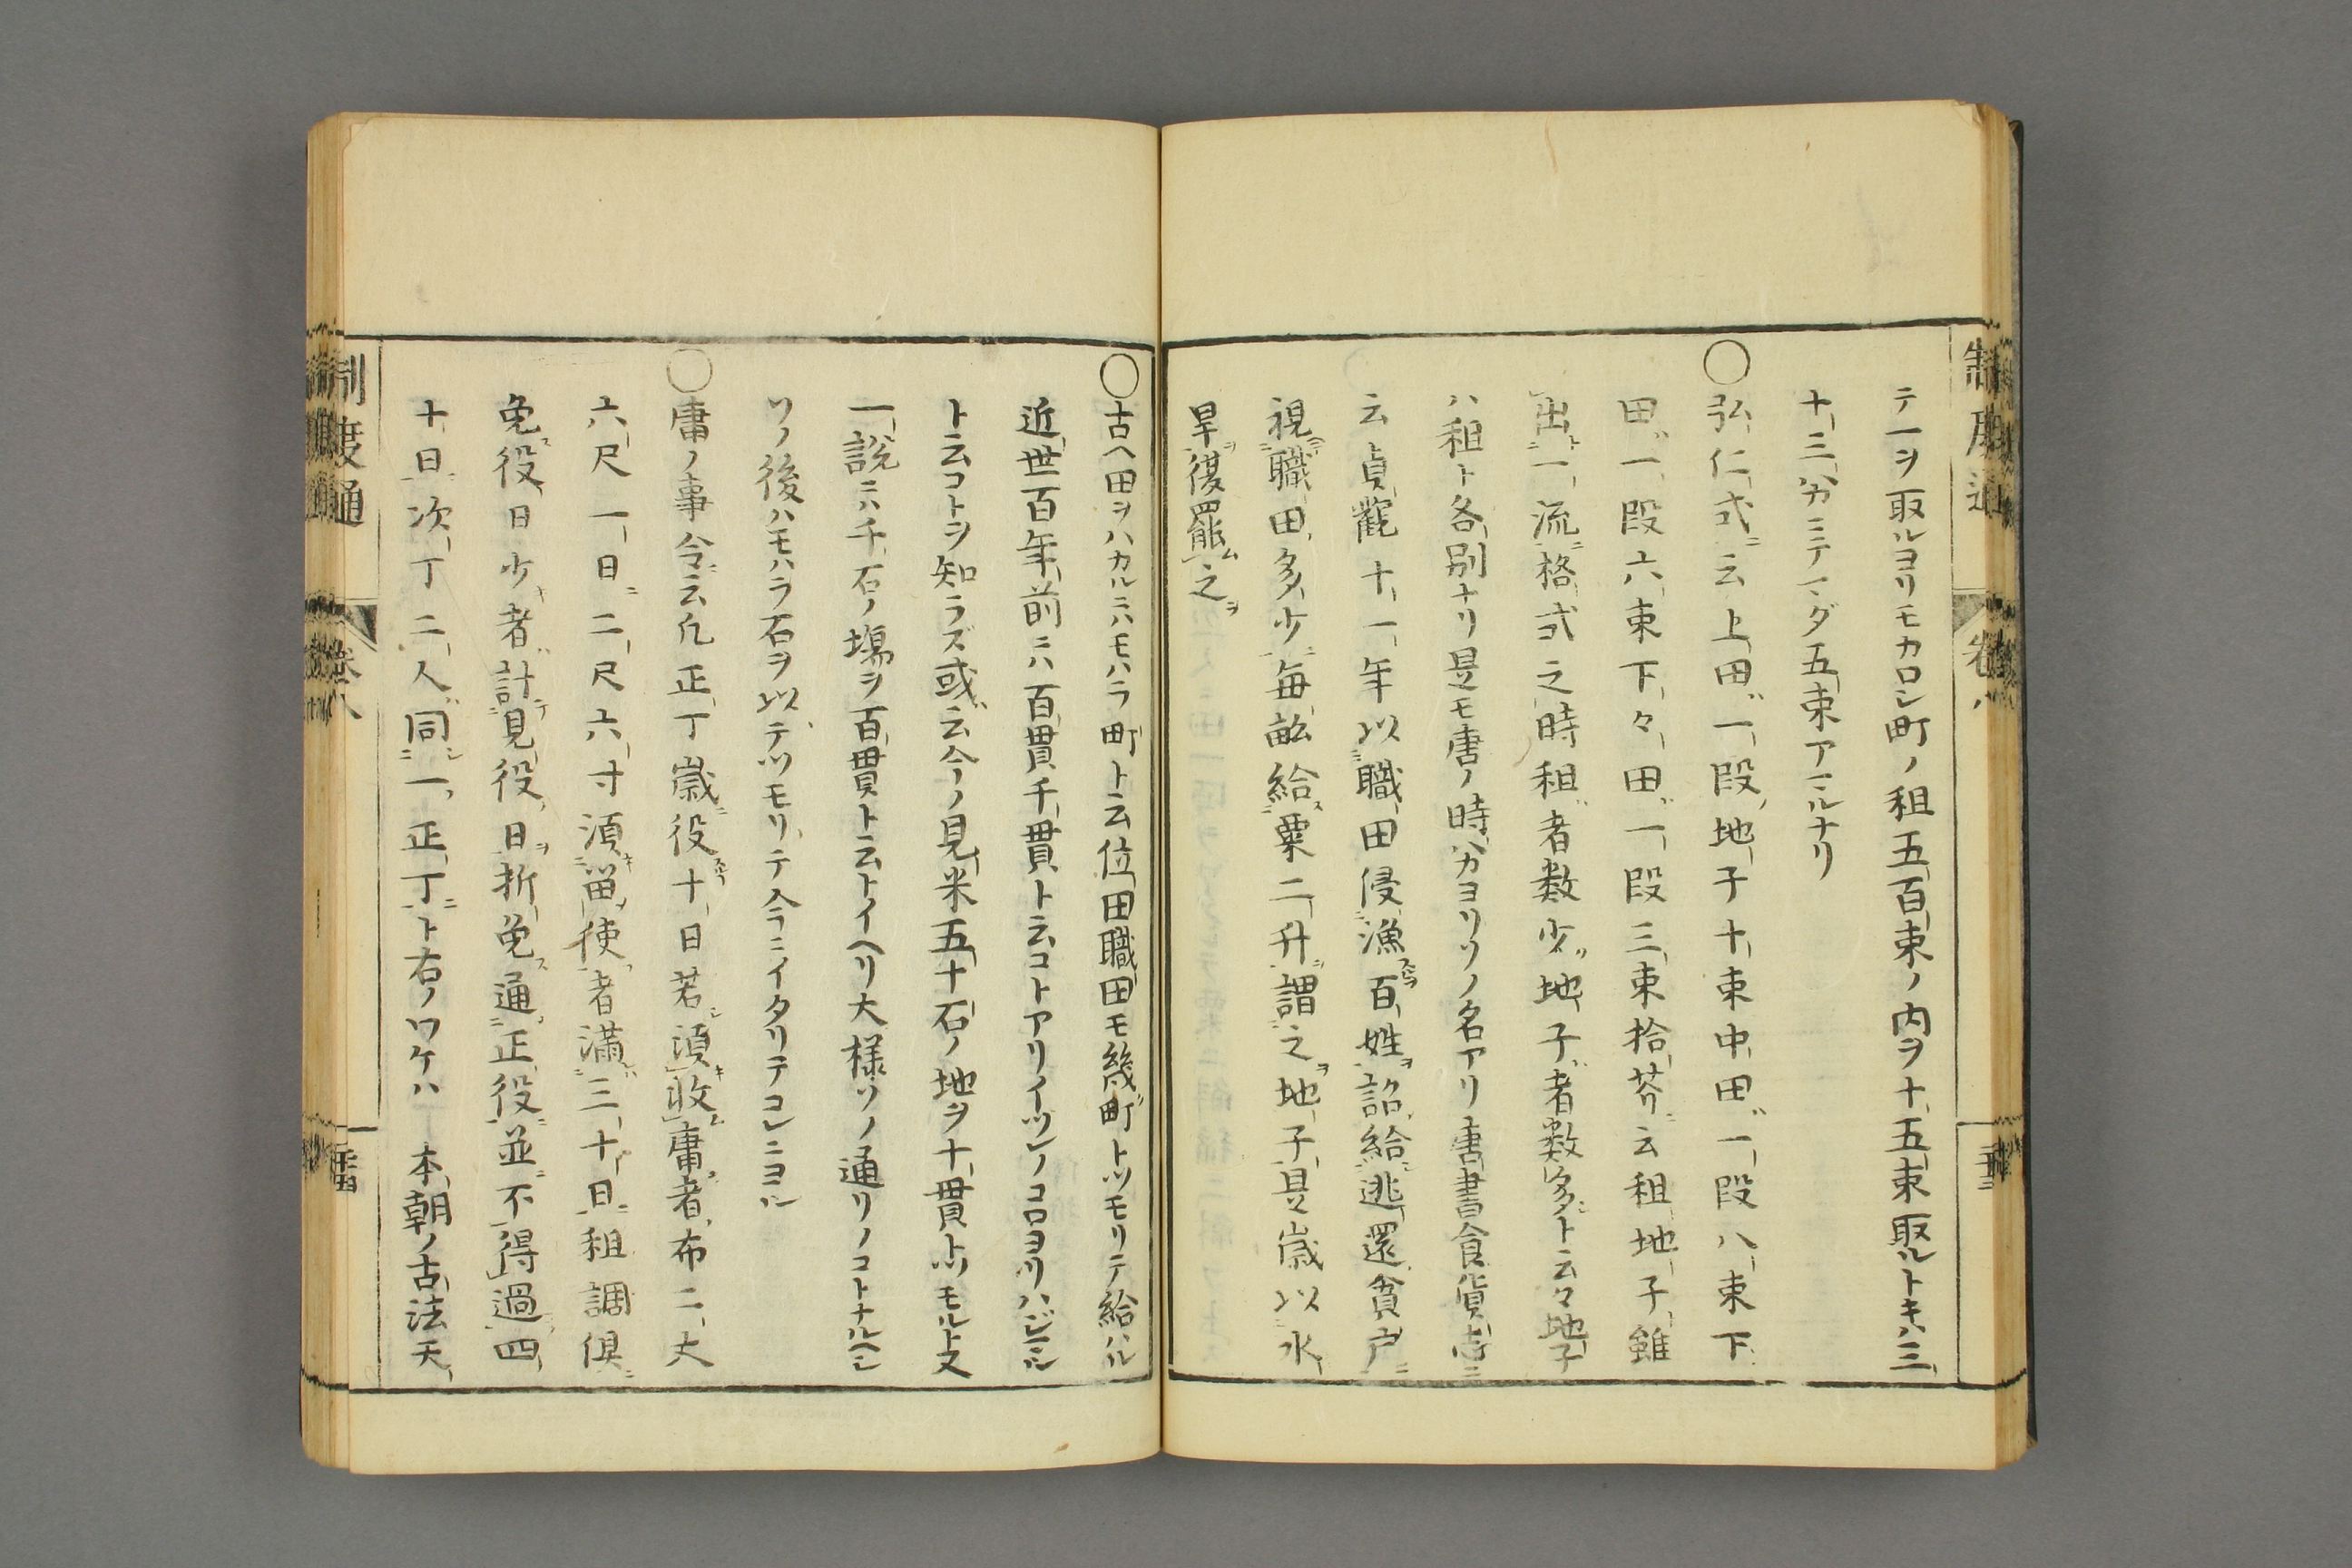 テ一ヲ取ルヨリモカロシ町ノ租五百束ノ内ヲ十五束取ルトキハ三
十三分カニテマダ五束アマルナリ
〇弘仁式云上田一段地子十束中田一段八束下
田一段六束下々田一段三束拾芥云租地子雖
出一流格式之時租者数少地子者数多ト云々地子
ハ租ト各別ナリ是モ唐ノ時ハカヨリソノ名アリ唐書食貨志ニ
云貞観十一年以職田侵漁百姓詔給逃還貧戸
視職田多少毎畝給粟二升謂之地子是歳以水
旱復罷之
〇古ヘ田ヲハカルニハモハラ町ト云位田職田モ幾町トツモリテ給ハル
近世百年前ニハ百貫千貫ト云コトアリイツレノコロヨリハジマル
ト云コトヲ知ラズ或云今ノ見米五十石ノ地ヲ十貫トツモル卜又
一説ニハ千石ノ場ヲ百貫ト云トイヘリ大様ソノ通リノコトナルヘシ
ソノ後ハモハラ石ヲ以テツモリテ今ニイタリテコレニヨル
〇庸ノ事令云凡正丁歳役十日若須収庸者布二丈
六尺一日二尺六寸須留使者満三十日租調倶
免役日少者計見役日折免通正役並不得過四
十日次丁二人同一正丁ト右ノワケハ本朝ノ古法天
制度通
巻八